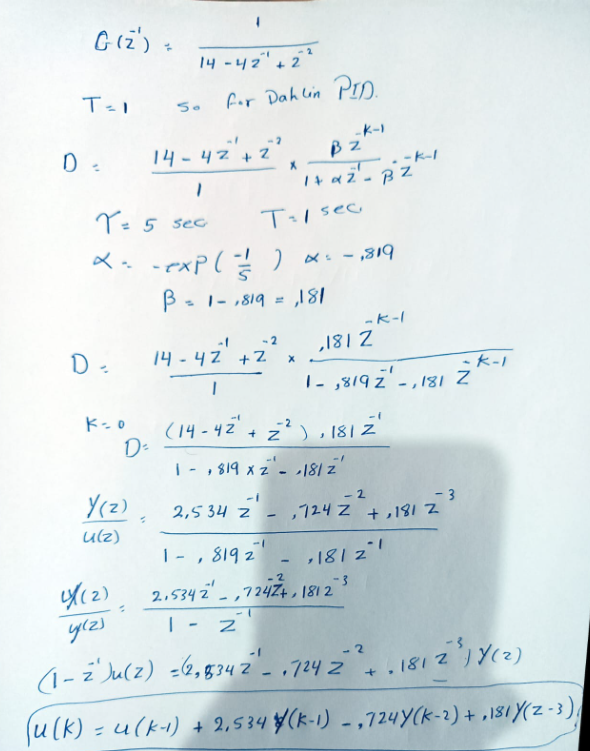 G(z⁻¹) = 1 / (14 - 4z⁻¹ + z⁻²)
T = 1 so for Dahlin PID.
D = (14 - 4z⁻¹ + z⁻²) / 1 × βz⁻ᵏ⁻¹ / (1 + αz⁻¹ - βz⁻ᵏ⁻¹)
τ = 5 sec T = 1 sec
α = -exp(-1/5) α = -,819
β = 1 - ,819 = ,181
D = (14 - 4z⁻¹ + z⁻²) / 1 × ,181z⁻ᵏ⁻¹ / (1 - ,819z⁻¹ - ,181z⁻ᵏ⁻¹)
K = 0
D = (14 - 4z⁻¹ + z⁻²) ,181z⁻¹ / (1 - ,819 × z⁻¹ - ,181z⁻¹)
Y(z)/u(z) = (2,534z⁻¹ - ,724z⁻² + ,181z⁻³) / (1 - ,819z⁻¹ - ,181z⁻¹)
u(z)/y(z) = (2,534z⁻¹ - ,724z⁻² + ,181z⁻³) / (1 - z⁻¹)
(1 - z⁻¹)u(z) = (2,534z⁻¹ - ,724z⁻² + ,181z⁻³)Y(z)
u(k) = u(k-1) + 2,534Y(k-1) - ,724Y(k-2) + ,181Y(z-3)